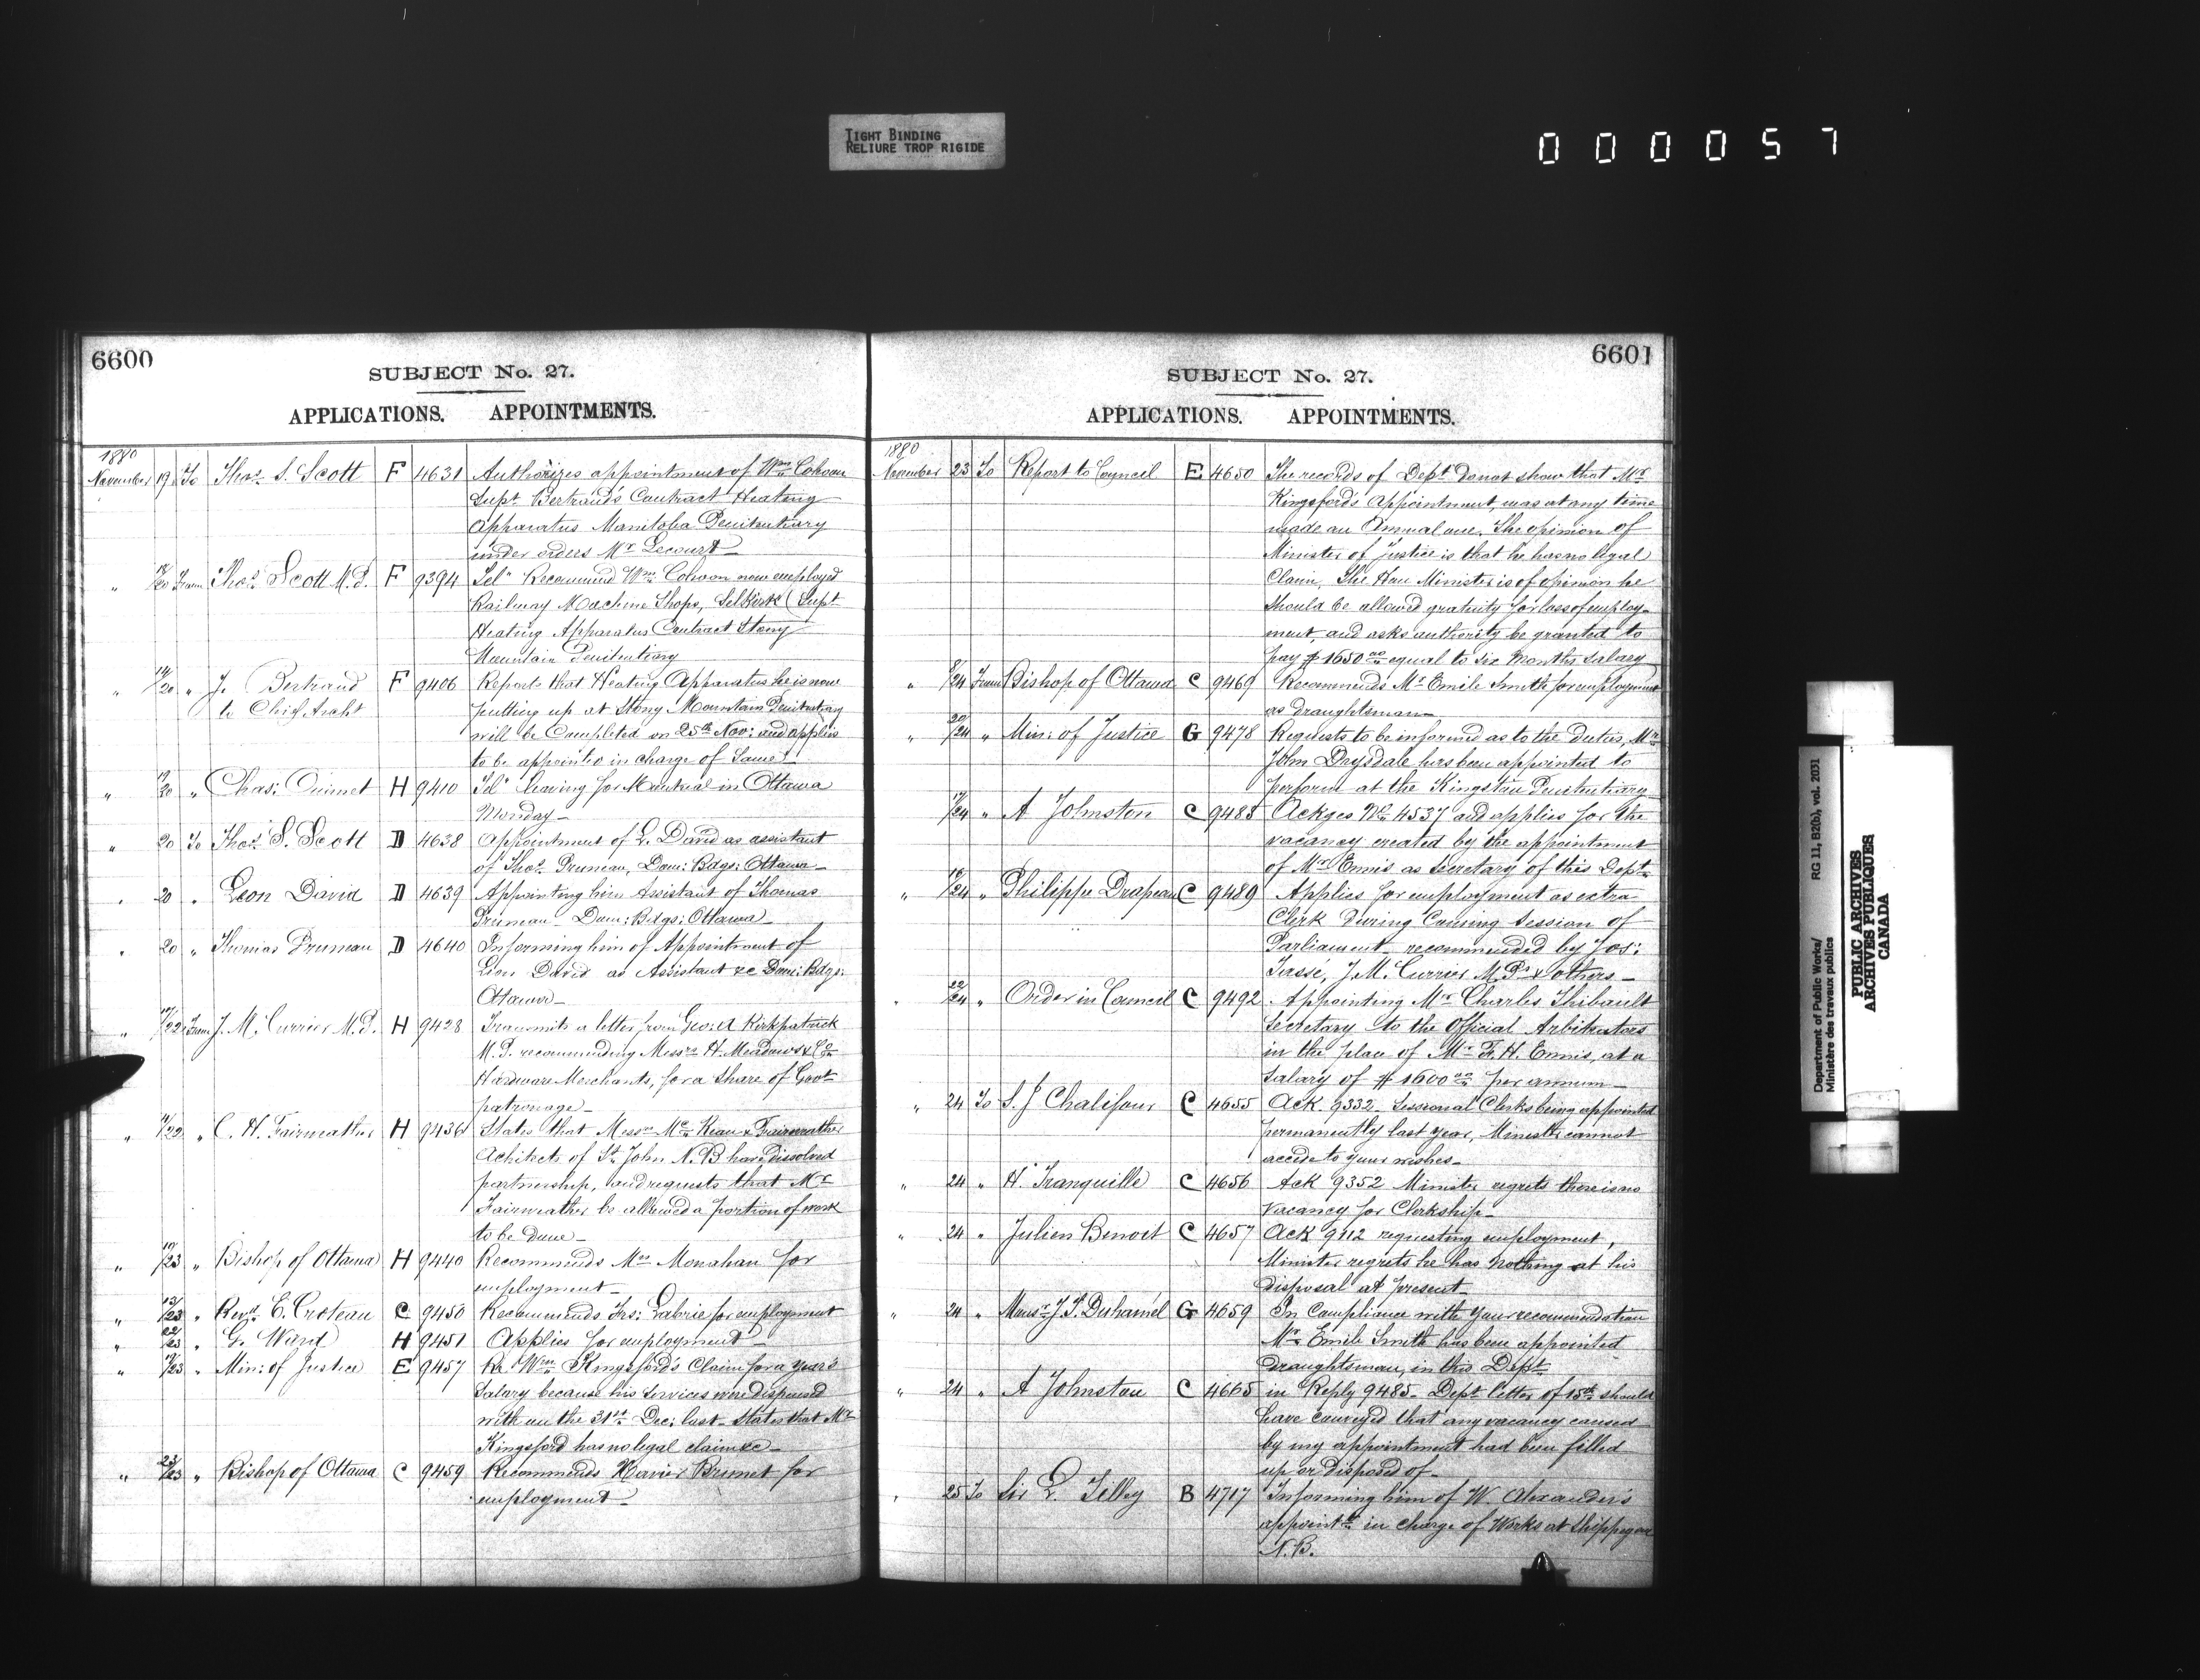 TIGHT BINDING
RELIURE TROP RIGIDE
000057
6600
SUBJECT No. 27.
APPLICATIONS. APPOINTMENTS.
1880
November 19 To Thos. S. Scott F 4631 Authorizes appointment of Wm
Supt Bertrand's Contract Heating
Apparatus Manitoba Penitentiary
under orders Mr Lecourt
" 18/20 From Thos. Scott M.P. F 9394 Tel" Recommend Wm now employed
Railway Machine Shops, Selkirk (Supt
Heating Apparatus Contract Stony
Mountain Penitentiary
" 14/20 " J. Bertrand F 9406 Reports that Heating Apparatus he is now
to Chief Archt putting up at Stony Mountain Penitentiary
will be Completed on 25th Nov: and applies
to be appointed in charge of Same
" 19/20 " Chas: Ouimet H 9410 Tel" leaving for Montreal in Ottawa
Monday
" 20 To Thos. S. Scott D 4638 Appointment of L. David as assistant
of Thos. Pruneau, Dom: Bdgs: Ottawa
" 20 " Leon David D 4639 Appointing him Assistant of Thomas
Pruneau Dom: Bdgs: Ottawa
" 20 " Thomas Pruneau D 4640 Informing him of Appointment of
Leon David as Assistant &c Dom: Bdgs:
Ottawa
" 19/22 From J. M. Currier M.P. H 9428 Transmits a letter from Geo: A Kirkpatrick
M.P. recommending Messrs H. Meadows & Co
Hardware Merchants, for a share of Govt
patronage
" /22 " C. H. Fairweather H 9436 States that Messrs McKean & Fairweather
Achitects of St John N.B have dissolved
partnership, and requests that Mr
Fairweather be allowed a portion of work
to be done
" 19/23 " Bishop of Ottawa H 9440 Recommends Mr Monahan for
employment
" 13/23 " Revd. E. Croteau C 9450 Recommends Frs: Labrie for employment
" 22/23 " G. Ward H 9451 Applies for employment
" 19/23 " Min: of Justice E 9457 Re Wm Kingsford's Claim for a year's
Salary because his Services were dispensed
with on the 31st Dec: last. States that Mr
Kingsford has no legal claim &c
" 23/23 " Bishop of Ottawa C 9459 Recommends Xavier Brunet for
employment
6601
SUBJECT No. 27.
APPLICATIONS. APPOINTMENTS.
1880
November 23 To Report to Council E 4650 The records of Dept do not show that Mr
Kingsford's Appointment, was at any time
made an Annual one. The opinion of
Minister of Justice is that he has no legal
Claim. The Hon Minister is of opinion he
should be allowed gratuity for loss of employ-
ment, and asks authority be granted to
pay $1650.00 equal to six months salary
" 8/24 From Bishop of Ottawa C 9469 Recommends Mr Emile Smith for employment
as draughtsman
" 20/24 " Min: of Justice G 9478 Requests to be informed as to the duties, Mr
John Drysdale has been appointed to
perform at the Kingston Penitentiary
17/24 " A Johnston C 9485 Ackges No 4537 and applies for the
vacancy created by the appointment
of Mr Ennis as Secretary of this Dept
" 18/24 " Philippe Drapeau C 9489 Applies for employment as extra
Clerk During Coming Session of
Parliament recommended by Jos:
Tassé, J. M. Currier M.Ps & others
" 22/24 " Order in Council C 9492 Appointing Mr Charles Thibault
Secretary to the Official Arbitrators
in the place of Mr F. H. Ennis, at a
Salary of $1600.00 per annum
" 24 To S. J Chalifour C 4655 Ack. 9332 Sessional Clerks being appointed
permanently last year, Minister cannot
accede to your wishes
" 24 " H. Tranquille C 4656 Ack 9352 Minister regrets there is no
vacancy for Clerkship
" 24 " Julien Benoit C 4657 Ack 9112 requesting employment,
Minister regrets he has nothing at his
disposal at present
" 24 " Monsr J. T. Duhamel G 4659 In Compliance with your recommendation
Mr Emile Smith has been appointed
Draughtsman, in this Dept
" 24 " A Johnston C 4665 in Reply 9485. Dept letter of 15th should
have conveyed that any vacancy caused
by my appointment had been filled
up or disposed of
" 25 To Sir L. Tilley B 4717 Informing him of W. Alexander's
appointt in charge of Works at Shippegan
N.B.
Department of Public Works/ RG 11, B2(b), vol. 2031
Ministère des travaux publics
PUBLIC ARCHIVES
ARCHIVES PUBLIQUES
CANADA